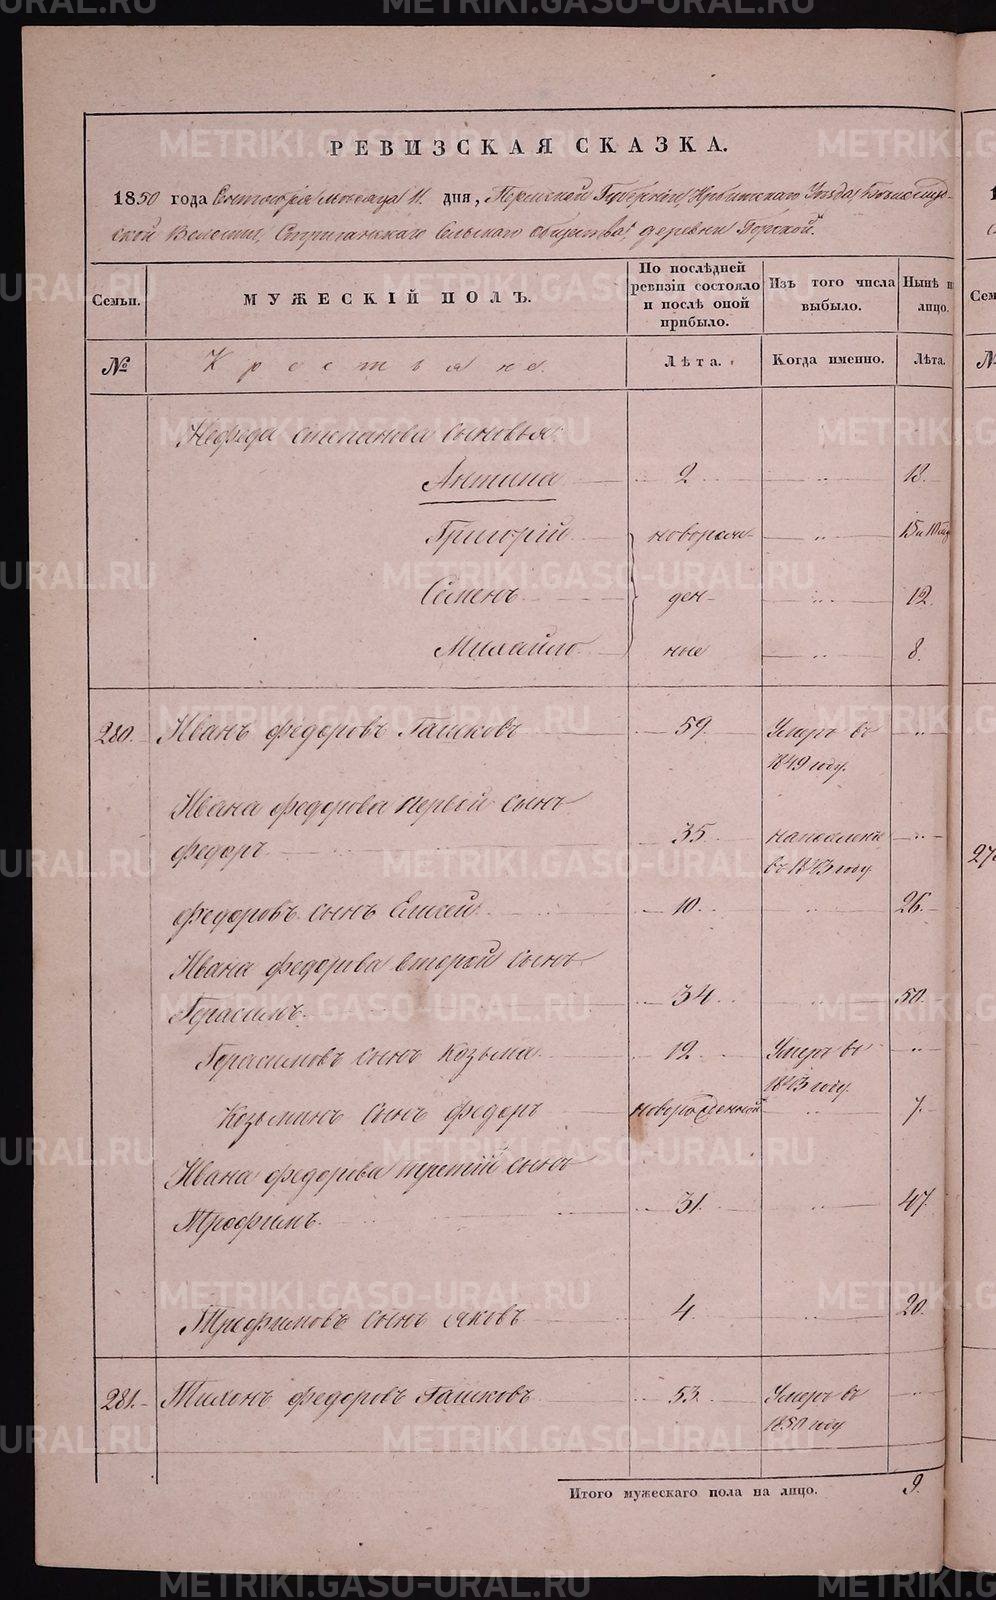 РЕВИЗСКАЯ СКАЗКА.
1850 года Сентября месяца 11. дня, Пермской Губерніи, Ирбитскаго Уѣзда,
ской Волости, Сельскаго общества, деревни Горской.
Семьи.
МУЖЕСКІЙ ПОЛЪ.
По послѣдней ревизіи состояло и послѣ оной прибыло.
Изъ того числа выбыло.
Нынѣ н лицо.
№
Крестьяне.
Лѣта.
Когда именно.
Лѣта.
Нефеда степанова сыновья:
Антипа 2 18.
Григорій новорож- 15
Семенъ ден- 12.
Михайло ные 8.
280. Иванъ федоровъ Гашковъ 59. Умеръ въ
1849 году.
Ивана федорова первой сынъ
федоръ 35
въ 1843 году.
федоровъ сынъ Елисей 10. 26.
Ивана федорова второй сынъ
Герасимъ. 34. 50.
Герасимовъ сынъ Козьма 12. Умеръ въ
1843 году.
Козьминъ сынъ федоръ новорожденный 7.
Ивана федорова третій сынъ
Трофимъ. 31. 47.
Трофимовъ сынъ яковъ 4. 20.
281. Тихонъ федоровъ Гашковъ 53. Умеръ въ
1850 году
Итого мужескаго пола на лицо. 9.
METRIKI.GASO-URAL.RU